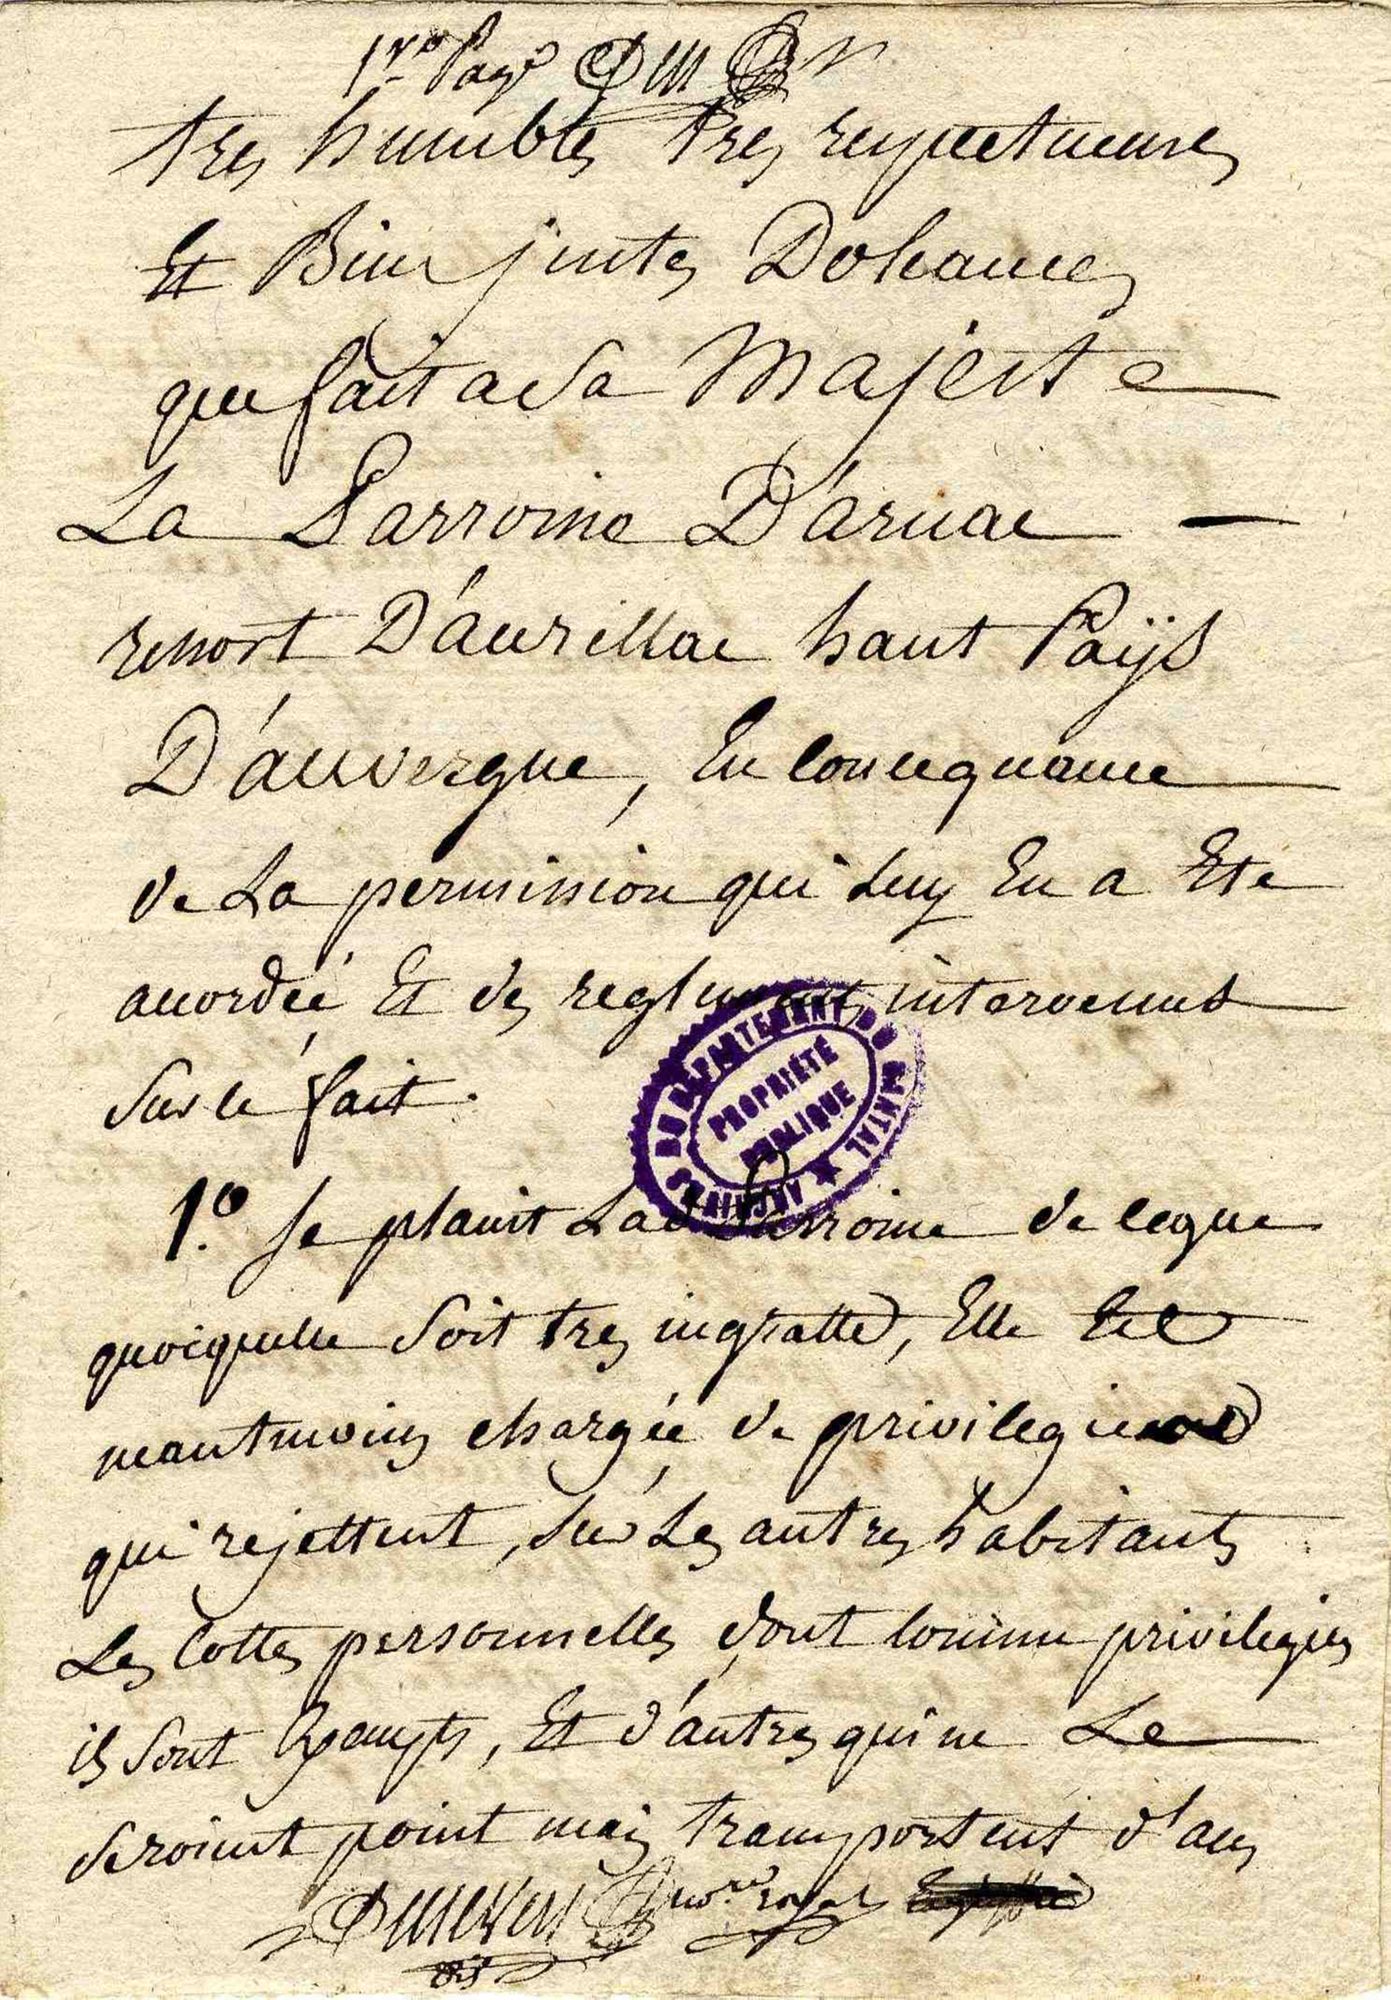 1re Page
tres humbles tres respectueuses
Et Bien justes Doleances
que fait a Sa Majesté
La Parroisse D'arnac —
ressort D'aurillac haut Païs
D'auvergne, En consequance
de La permission qui Luy En a Eté
accordée Et des reglements intervenus
Sur le fait.
ARCHIVES DU DEPARTEMENT DU CANTAL
PROPRIÉTÉ
PUBLIQUE
1.o Se plaint Lad. Parroisse de ceque
quoiquelle Soit tres ingratte, Elle Est
neantmoins chargée de privilegies
qui rejettent, Sur Les autres habitants
Les Cottes personnelles dont comme privilegies
ils Sont Exempts, Et d'autres qui ne Le
Seroient point mais transportent d'aus
royal